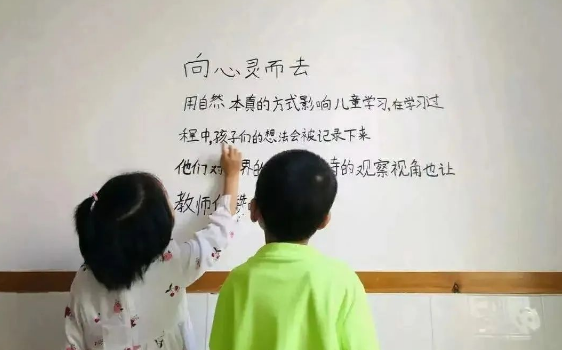 向心灵而去
用自然本真的方式影响儿童学习,在学习过
程中,孩子们的想法会被记录下来
他们对 界的 的观察视角也让
教师